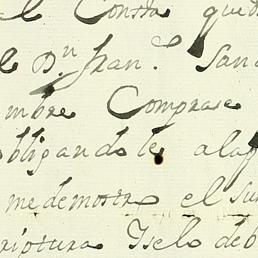 al Consta que
el Dn Franco San
mbre Comprase
obligandole alap
me demostro el su
criptura Yselo deb